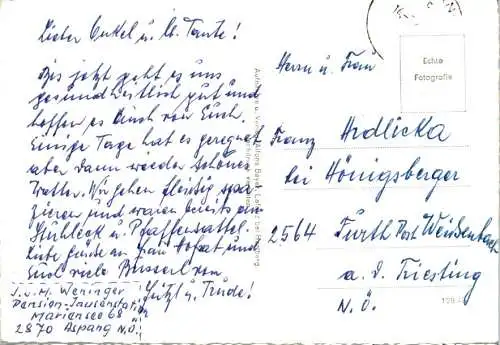 Lieber Onkel u. lb. Tante!
Bis jetzt geht es uns
gesundheitlich gut und
hoffen es auch von Euch.
Einige Tage hat es geregnet
aber dann wieder schönes
Wetter. Wir gehen fleißig spa
zieren und waren bereits am
Stuhleck u. Pfaffensattel.
Liebe Grüße an Frau und
Euch viele Busserl von
u. Trude!
J. u. M. Weninger
Pension-Jausenstation
Mariensee 68
2870 Aspang N.Ö.
Echte
Fotografie
Herrn u. Frau
Franz Hrdlicka
bei Hönigsberger
2564 Furth Post Weissenbach
a. d. Triesting
N.Ö.